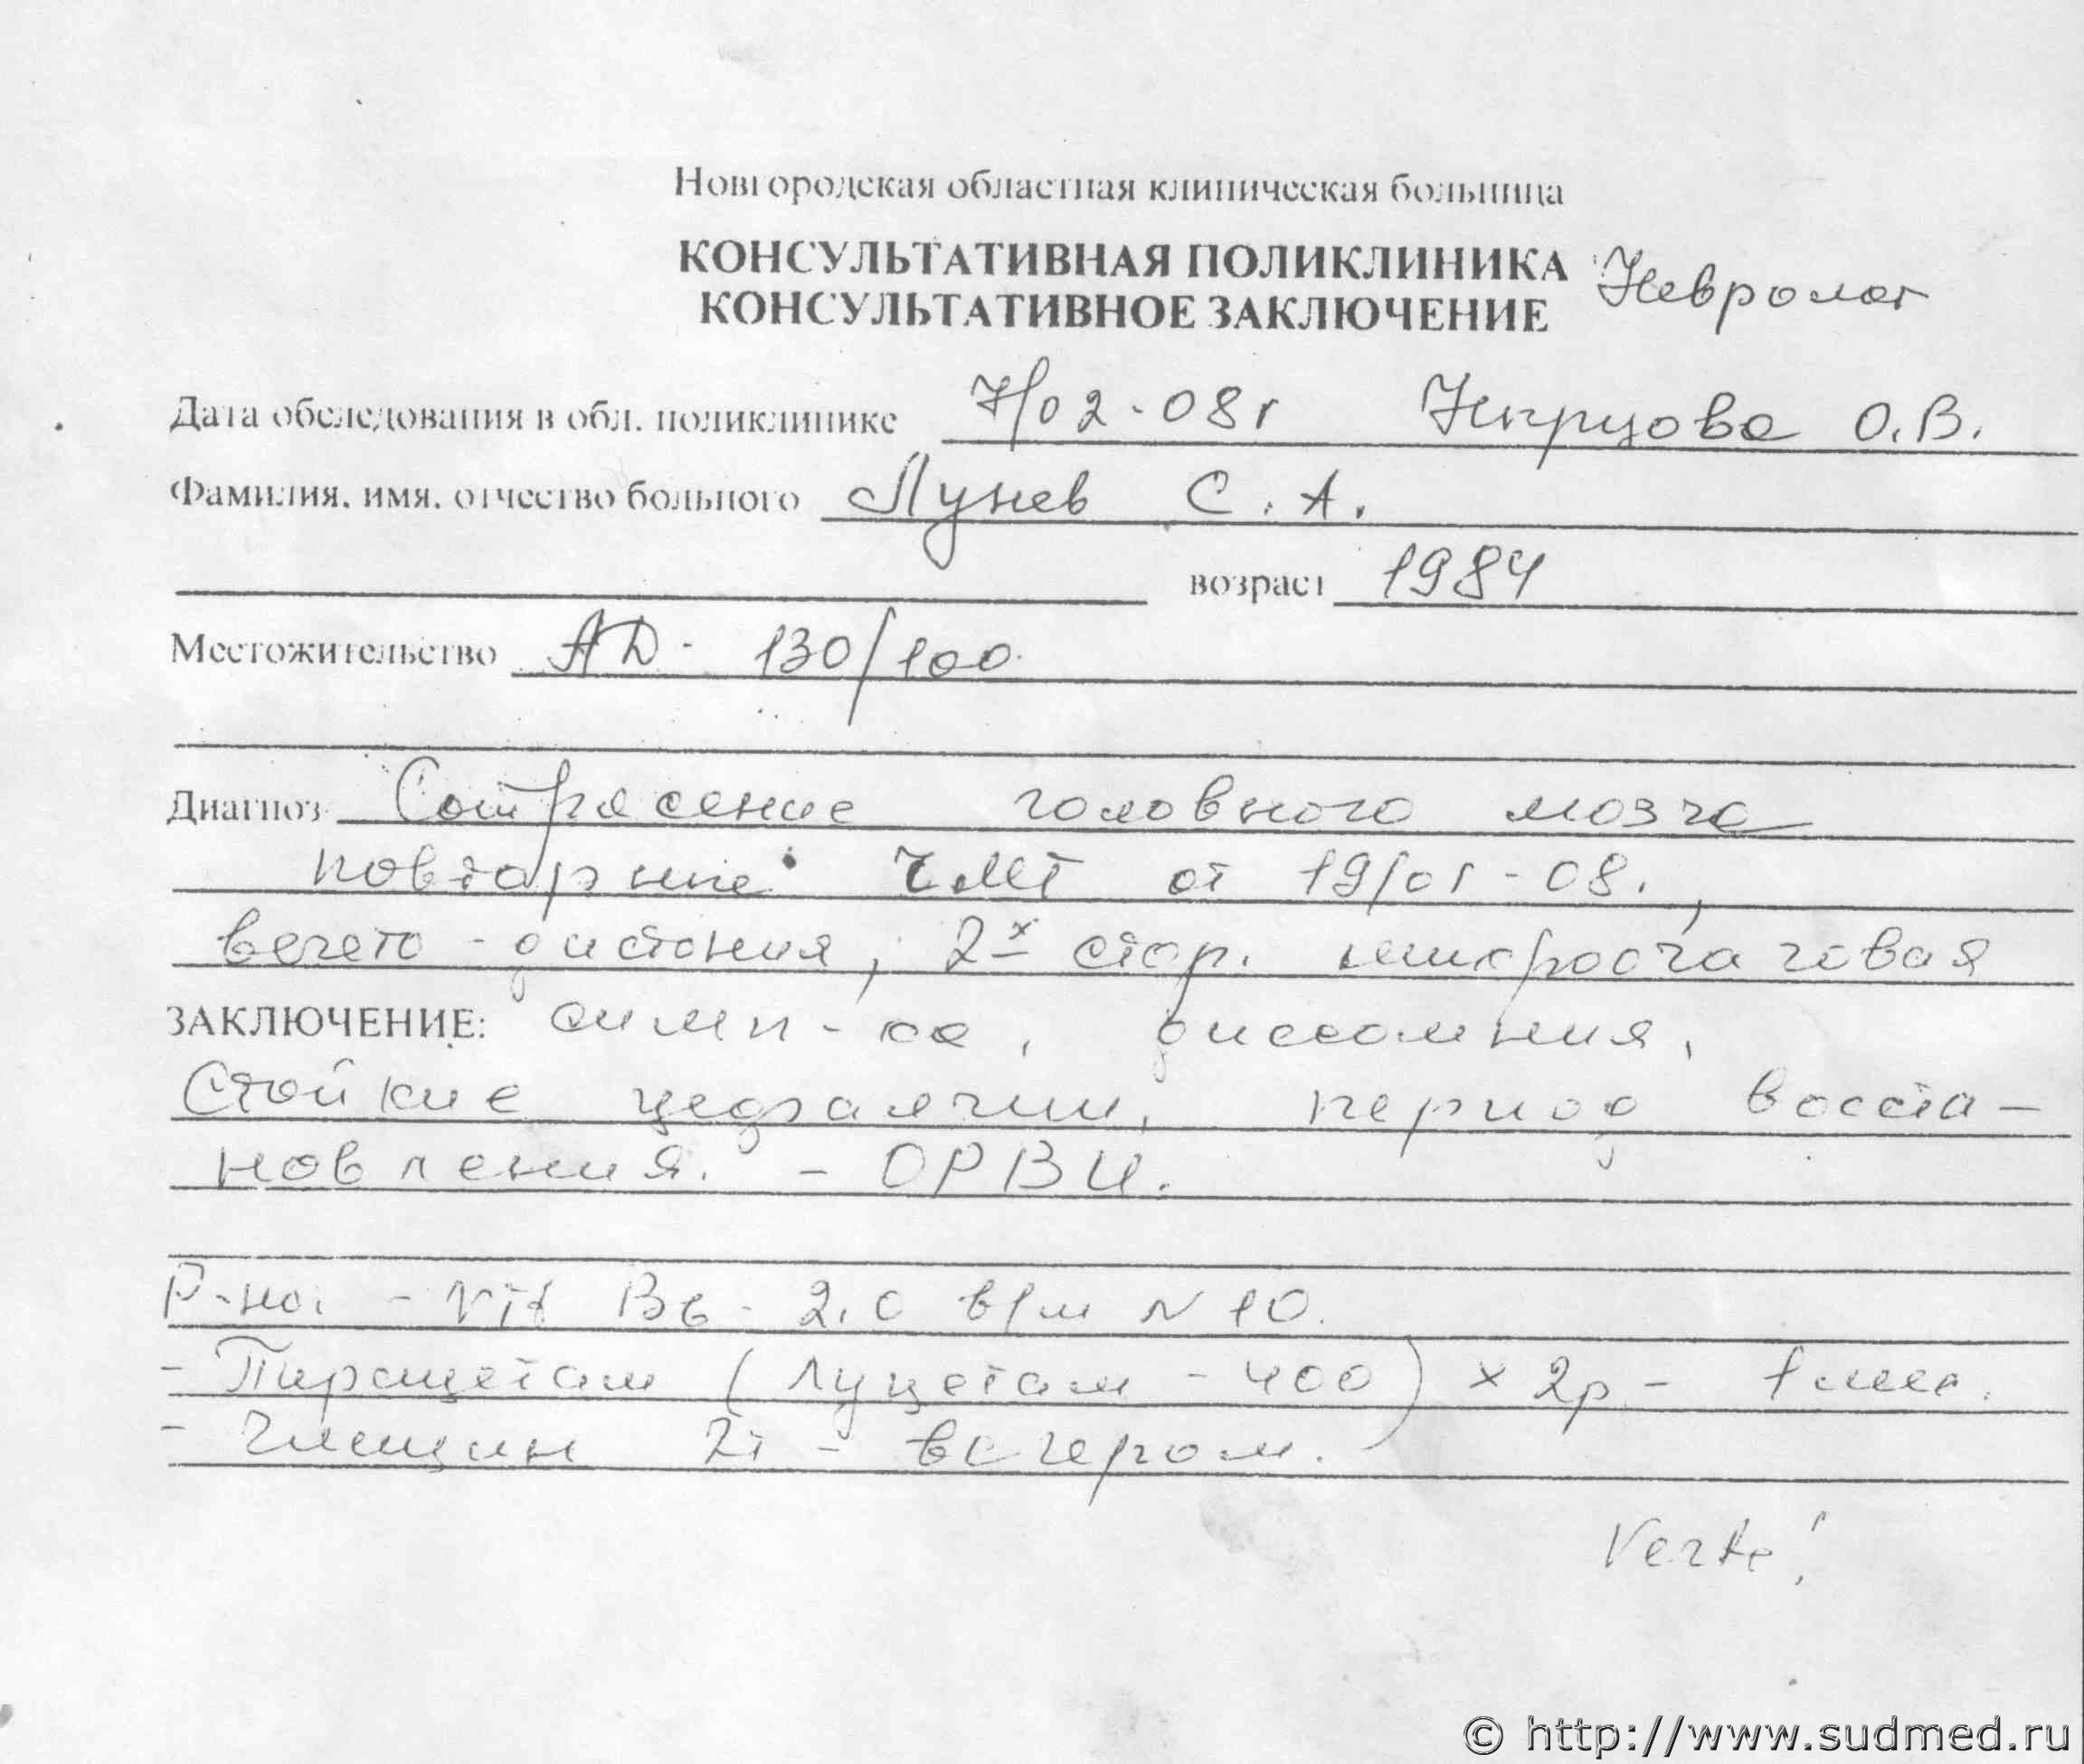 Новгородская областная клиническая больница
КОНСУЛЬТАТИВНАЯ ПОЛИКЛИНИКА Невролог
КОНСУЛЬТАТИВНОЕ ЗАКЛЮЧЕНИЕ
Дата обследования в обл. поликлинике 7/02-08г О.В.
Фамилия, имя, отчество больного Лунев С.А.
возраст 1984
Местожительство АД- 130/100.
Диагноз Сотрясение головного мозга
повторные ЧМТ от 19/01-08.,
вегето-дистония, 2х стор. микроочаговая
ЗАКЛЮЧЕНИЕ: симп-ка, диссомния,
Стойкие цефалгии, период восста-
новления. - ОРВИ.
Р-но: - Vit В6- 2,0 в/м N10.
- Пирацетам (Луцетам - 400) х 2р - 1 мес.
- Глицин 2т - вечером.
Verte!
© http://www.sudmed.ru